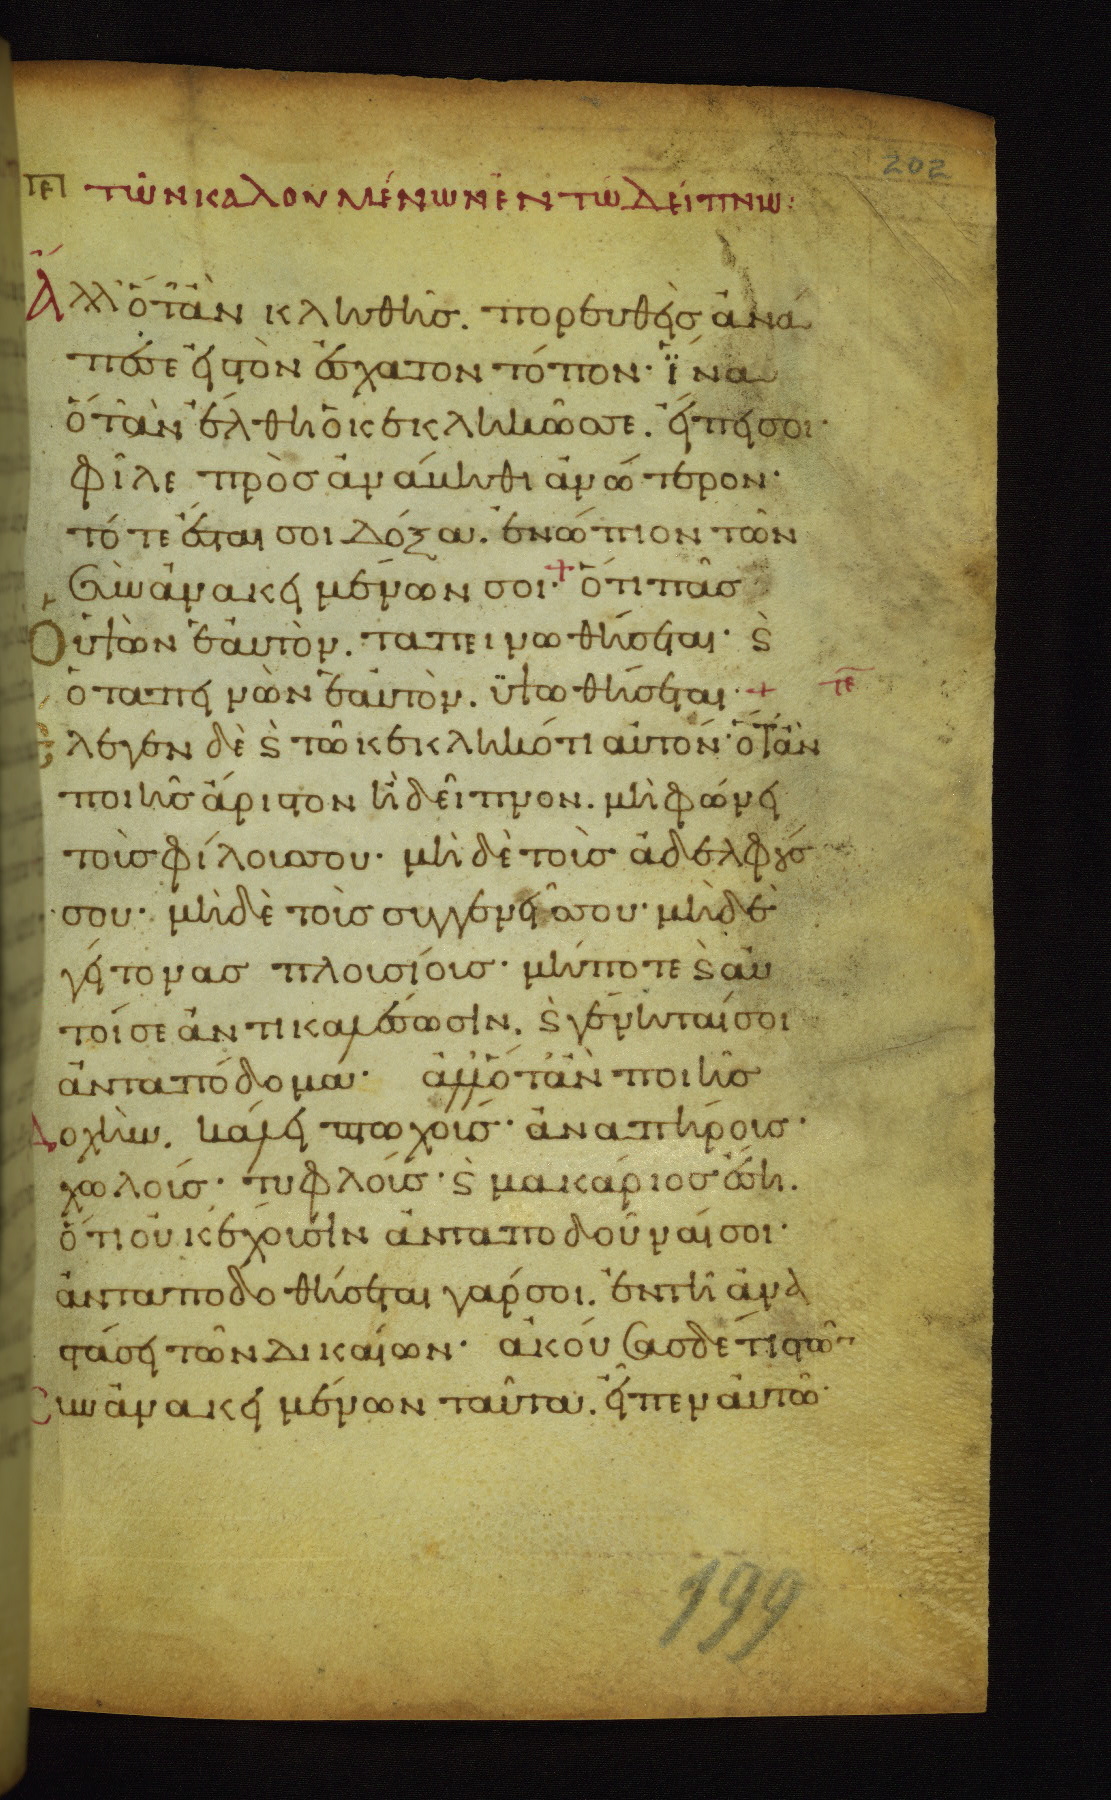 202
πε τῶν καλουμένων ἐν τῶ δείπνω:
Ἀλλ' ὅτἂν κληθῆσ. πορευθεὶσ ἀνά
πεσε εἰ τὸν ἔσχατον τόπον· ἵνα
ὅτἂν ἔλθη ὁ κεκληκώσ σε. εἴπη σοι·
φίλε προσανάμηθι ἀνώτερον·
τότε ἔσται σοι δόξα. ἐνώπιον τῶν
συνανακειμένων σοι· + ὅτι πᾶσ
ὁ ὑψῶν ἑαυτὸν. ταπεινωθήσεται· ϛ̀
ὁ ταπεινῶν ἑαυτὸν. ὑψωθήσεται· + τε
ἔλεγεν δὲ ϛ̀ τῶ κεκληκότι αὐτόν· ὅτἂν
ποιῆσ ἄριστον ἢ δεῖπνον. μὴ φώνει
τοὺσ φίλουσ σου· μὴ δὲ τοὺσ ἀδελφούσ
σου· μὴ δὲ τοὺσ συγγενεῖσ σου· μὴ δὲ
γείτονασ πλουσίουσ· μήποτε ϛ̀ αὐ
τοί σε ἀντικαλέσωσιν. ϛ̀ γένηταί σοι
ἀνταπόδομα· ἀλλ' ὅτἂν ποιῆσ
δοχὴν. κάλει πτωχούσ· ἀναπήρουσ·
χωλούσ· τυφλούσ· ϛ̀ μακάριοσ ἔση.
ὅτι οὐκ ἔχουσιν ἀνταποδοῦναί σοι·
ἀνταποδοθήσεται γάρ σοι. ἐν τῆ ἀνα
στάσει τῶν δικαίων· ἀκούσασ δέ τισ τῶν
συνανακειμένων ταῦτα. εἶπεν αὐτῶ·
199